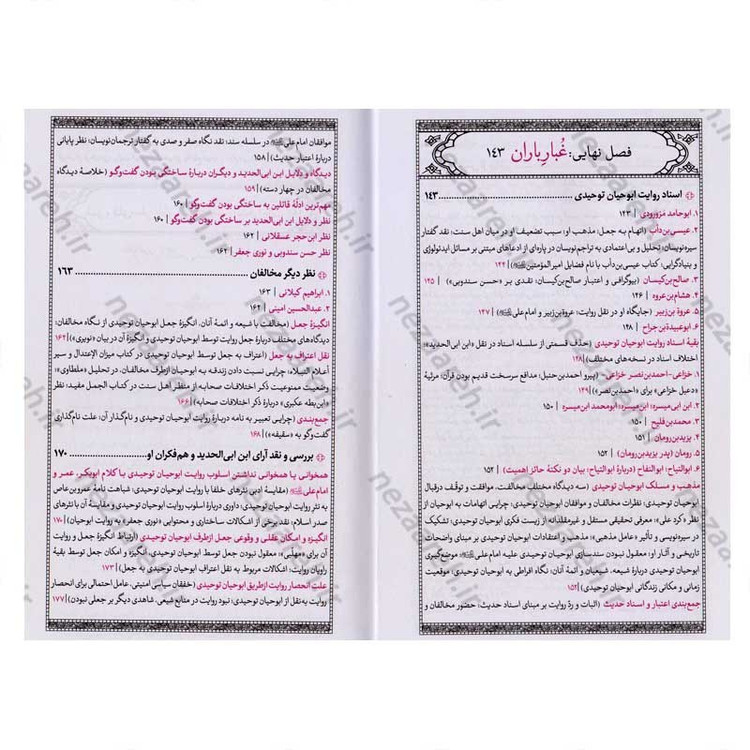 فصل نهایی: غُبارِ باران ۱۴۳
اسناد روایت ابوحیان توحیدی ............ ۱۴۳
۱. ابوحامد مرورودی | ۱۴۳
۲. عیسی‌بن‌دأب (اتهام به جعل، مذهب او؛ سبب تضعیف او در میان اهل سنت؛ نقد گفتار
سیره‌نویسان؛ تحلیل و بی‌اعتمادی به تراجم‌نویسان در پاره‌ای از ادعاهای مبتنی بر مسائل ایدئولوژی
و بنیادگرایی؛ کتاب عیسی‌بن‌دأب با نام فضایل امیرالمؤمنین) | ۱۴۴
۳. صالح‌بن‌کیسان (بیوگرافی و اعتبار صالح‌بن‌کیسان؛ نقدی بر «حسن سندوبی») | ۱۴۵
۴. هشام‌بن‌عروه | ۱۴۶
۵. عروة‌بن‌زبیر (جایگاه او در نقل روایت؛ عروة‌بن‌زبیر و امام علی) | ۱۴۷
۶. ابوعبیدة‌بن‌جراح | ۱۴۸
بقیهٔ اسناد روایت ابوحیان توحیدی (حذف قسمتی از سلسله اسناد در نقل «ابن ابی‌الحدید»؛
اختلاف اسناد در نسخه‌های مختلف) | ۱۴۸
۱. خزاعی-احمدبن‌نصر خزاعی- (پیرو احمدبن‌حنبل، مدافع سرسخت قدیم بودن قرآن؛ مرثیهٔ
«دعبل خزاعی» برای «احمدبن‌نصر») | ۱۴۹
۲. ابن ابی میسره؛ ابن‌میسره؛ ابومحمد ابن‌میسره | ۱۵۰
۳. محمدبن‌فلیح | ۱۵۰
۴. یزیدبن‌رومان | ۱۵۱
۵. رومان (پدر یزیدبن‌رومان) | ۱۵۲
۶. ابوالتیاح؛ ابوالنفاح (دربارهٔ ابوالتیاح؛ بیان دو نکتهٔ حائز اهمیت) | ۱۵۲
مذهب و مسلک ابوحیان توحیدی (سه دیدگاه مختلف مخالفت، موافقت و توقّف درقبال
ابوحیان توحیدی؛ نظرات مخالفان و موافقان ابوحیان توحیدی؛ چرایی اتهامات به ابوحیان از
نظر «کرد علی»؛ معرفی تحقیقی مستقل و غیرمقلدانه از زیست فکری ابوحیان توحیدی؛ تشکیک
در سیره‌نویسی و تأثیر «عامل مذهبی»؛ مذهب و اعتقادات ابوحیان توحیدی بر مبنای واضحات
تاریخی و آثار او؛ معقول نبودن سندسازی ابوحیان توحیدی علیه امام علی؛ موضع‌گیری
ابوحیان توحیدی دربارهٔ شیعه؛ شیعیان و ائمهٔ آنان؛ نگاه افراطی به ابوحیان توحیدی؛ موقعیت
زمانی و مکانی زندگانی ابوحیان توحیدی) | ۱۵۲
جمع‌بندی اعتبار و اسناد حدیث (اثبات و ردّ روایت بر مبنای اسناد حدیث؛ حضور مخالفان و
موافقان امام علی در سلسله سند؛ نقد نگاه صفر و صدی به گفتار ترجمان‌نویسان؛ نظر پایانی
دربارهٔ اعتبار حدیث) | ۱۵۸
دیدگاه و دلایل ابن ابی‌الحدید و دیگران دربارهٔ ساختگی بودن گفت‌وگو (خلاصهٔ دیدگاه
مخالفان در چهار دسته) | ۱۵۹
مهم‌ترین ادلّهٔ قائلین به ساختگی بودن گفت‌وگو | ۱۶۰
نظر و دلایل ابن ابی‌الحدید بر ساختگی بودن گفت‌وگو | ۱۶۰
نظر ابن‌حجر عسقلانی | ۱۶۲
نظر حسن سندوبی و نوری جعفر | ۱۶۲
نظر دیگر مخالفان ............ ۱۶۳
۱. ابراهیم کیلانی | ۱۶۳
۲. عبدالحسین امینی | ۱۶۴
انگیزهٔ جعل (مخالفت با شیعه و ائمهٔ آنان، انگیزهٔ جعل ابوحیان توحیدی از نگاه مخالفان؛
دیدگاه‌های مختلف دربارهٔ جعل روایت توسط ابوحیان توحیدی و انگیزهٔ آن در بیان «نویری») | ۱۶۴
نقل اعتراف به جعل (اعتراف به جعل توسط ابوحیان توحیدی در کتاب میزان الإعتدال و سیر
أعلام النبلاء؛ چرایی نسبت دادن زندقه به ابوحیان ازطرف مخالفان، در تحلیل «ملطاوی»؛
وضعیت ممنوعیت ذکر اختلافات صحابه از منظر اهل سنت در کتاب الجمل مفید؛ نظر
«ابن‌بطه عکبری» دربارهٔ ذکر اختلافات صحابه) | ۱۶۶
جمع‌بندی (چرایی تعبیر به نامه دربارهٔ روایت ابوحیان توحیدی و نام‌گذار آن؛ علت نام‌گذاری
گفت‌وگو به «سقیفه») | ۱۶۸
بررسی و نقد آرای ابن ابی‌الحدید و هم‌فکران او ... ۱۷۰
همخوانی یا همخوانی نداشتن اسلوب روایت ابوحیان توحیدی با کلام ابوبکر، عمر و
امام علی (مقایسهٔ متن نثرهای خلفا با روایت ابوحیان توحیدی؛ شباهت نامهٔ عمروبن‌عاص
به نثر روایت ابوحیان توحیدی؛ داوری دربارهٔ اسلوب روایت ابوحیان توحیدی و مقایسهٔ آن با نثرهای
صدر اسلام؛ نقد برخی از اشکالات ساختاری و محتوایی «نوری جعفر» به روایت ابوحیان) | ۱۷۰
انگیزه و امکان عقلی و وقوعی جعل ازطرف ابوحیان توحیدی (ارتباط انگیزهٔ جعل و روایت
آن برای «مهلبی»؛ معقول نبودن جعل توسط ابوحیان توحیدی؛ انگیزه و امکان جعل توسط بقیهٔ
راویان روایت؛ اشکالات مربوط به نقل اعتراف به جعل توسط ابوحیان توحیدی) | ۱۷۳
علت انحصار روایت ازطریق ابوحیان توحیدی (خفقان سیاسی امنیتی، عامل احتمالی برای انحصار
روایت به‌نقل از ابوحیان توحیدی؛ نبود روایت در منابع شیعی، شاهدی دیگر بر جعلی نبودن) | ۱۷۷
nezaareh.ir